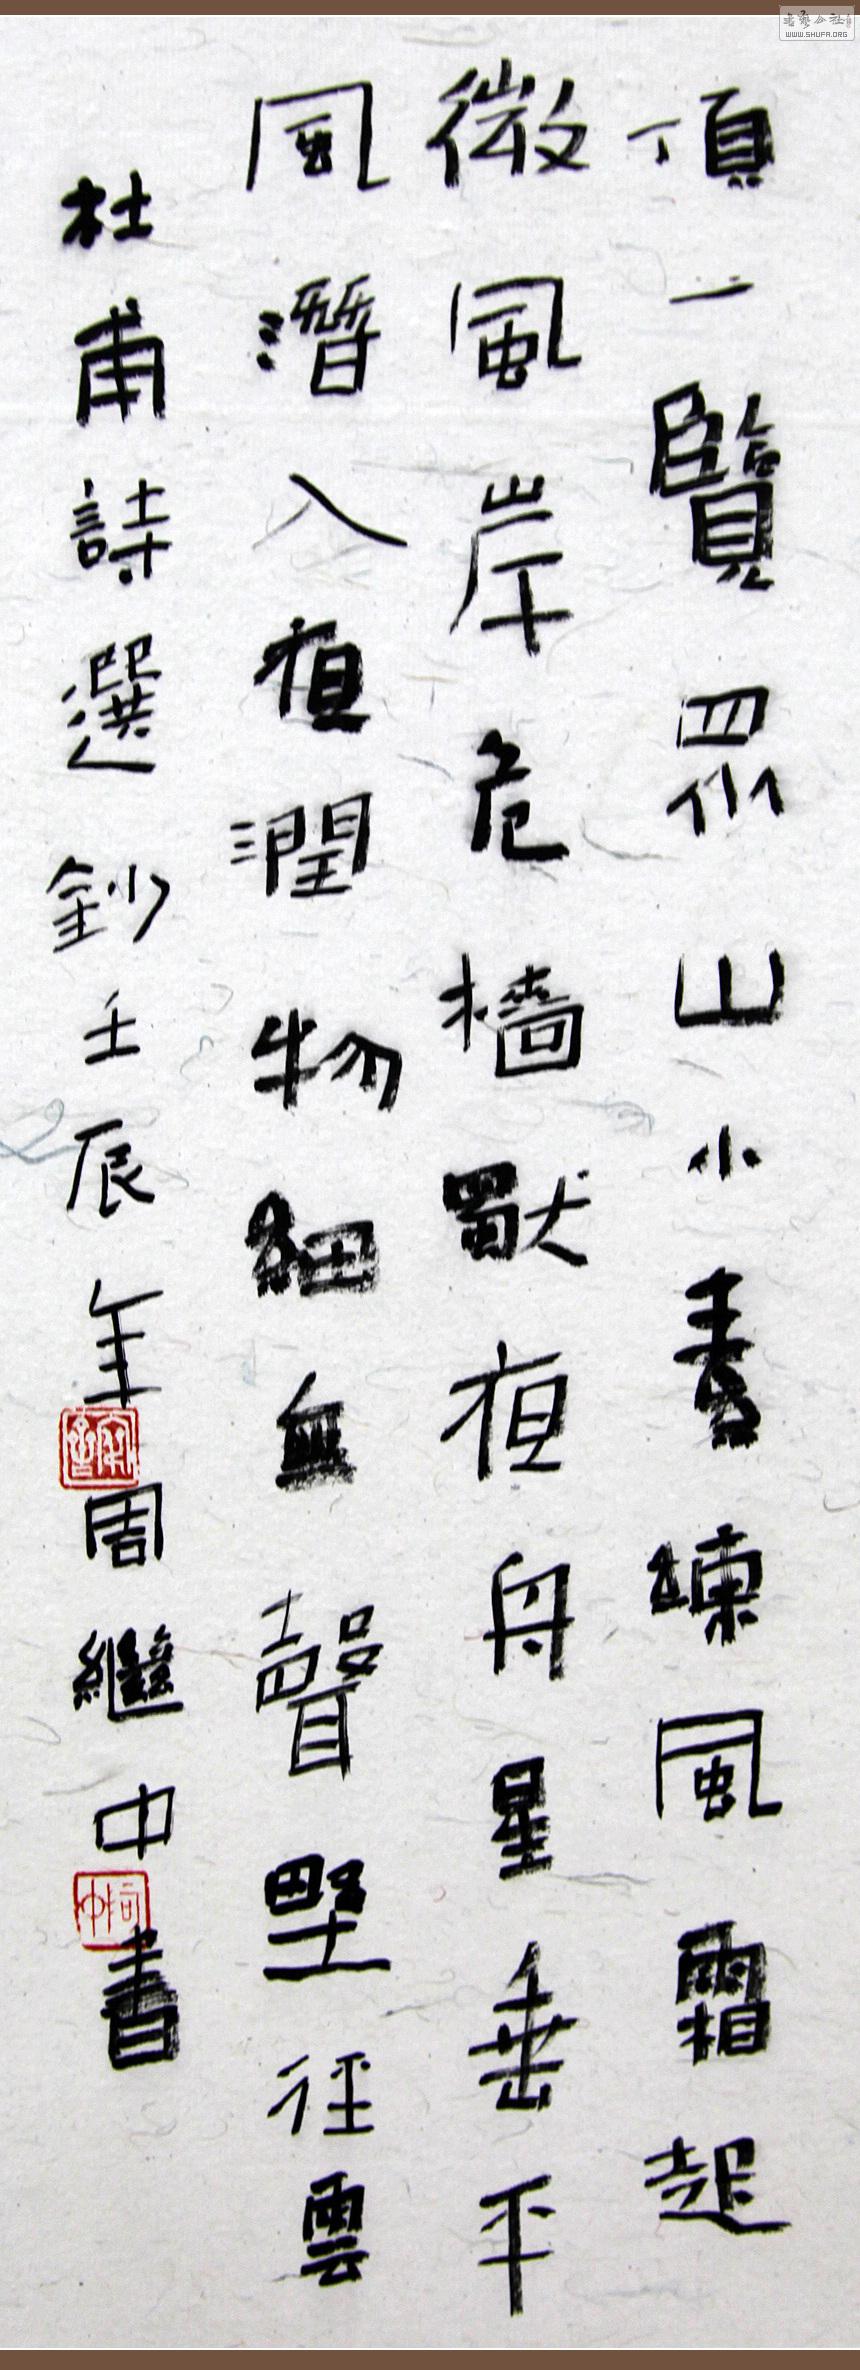 頂一覽眾山小素練風霜起
微風岸危檣獨夜舟星垂平
風潛入夜潤物細無聲野徑雲
杜甫詩選鈔壬辰年周繼中書
WWW.SHUFA.ORG